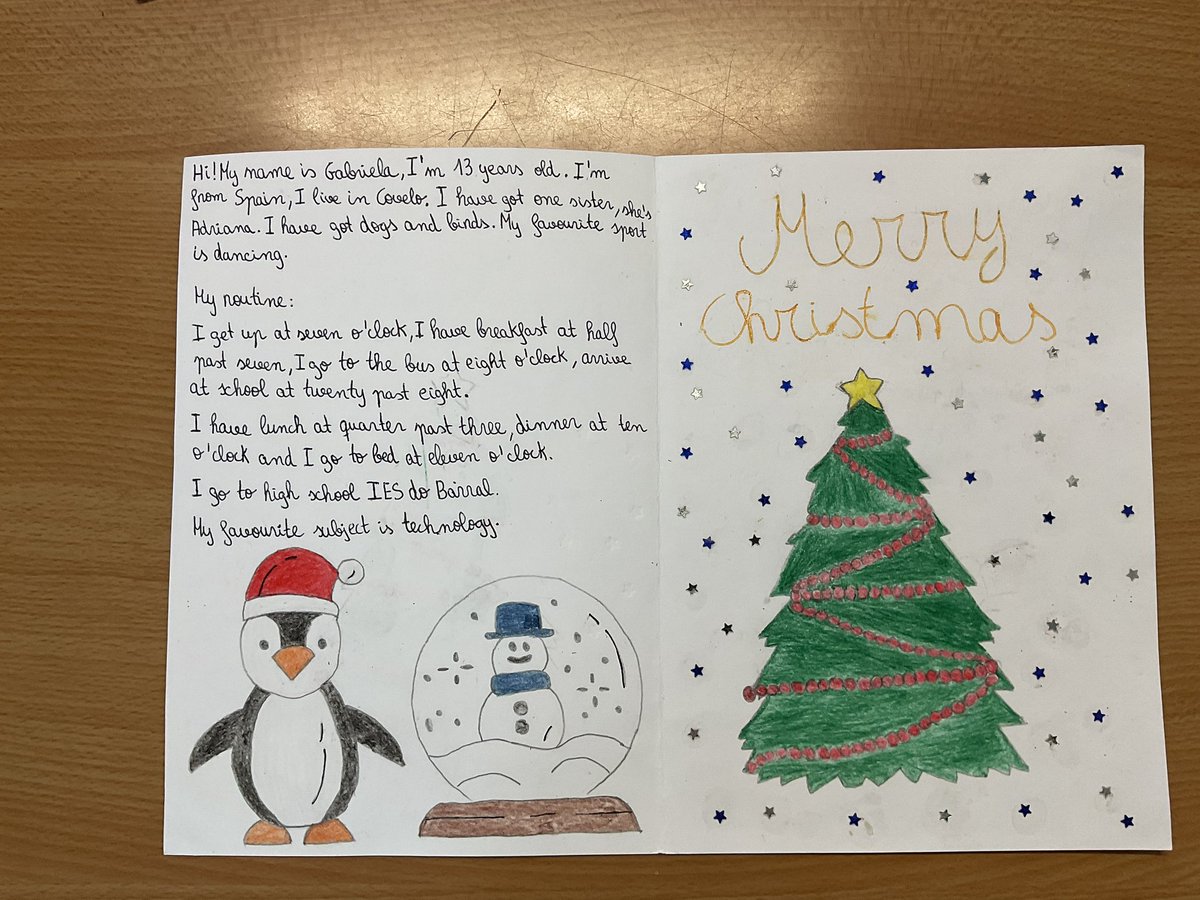 Hi! My name is Gabriela, I'm 13 years old. I'm
from Spain, I live in Covelo. I have got one sister, she's
Adriana. I have got dogs and birds. My favourite sport
is dancing.
My routine:
I get up at seven o'clock, I have breakfast at half
past seven, I go to the bus at eight o'clock, arrive
at school at twenty past eight.
I have lunch at quarter past three, dinner at ten
o'clock and I go to bed at eleven o'clock.
I go to high school IES do Barral.
My favourite subject is technology.
Merry
Christmas